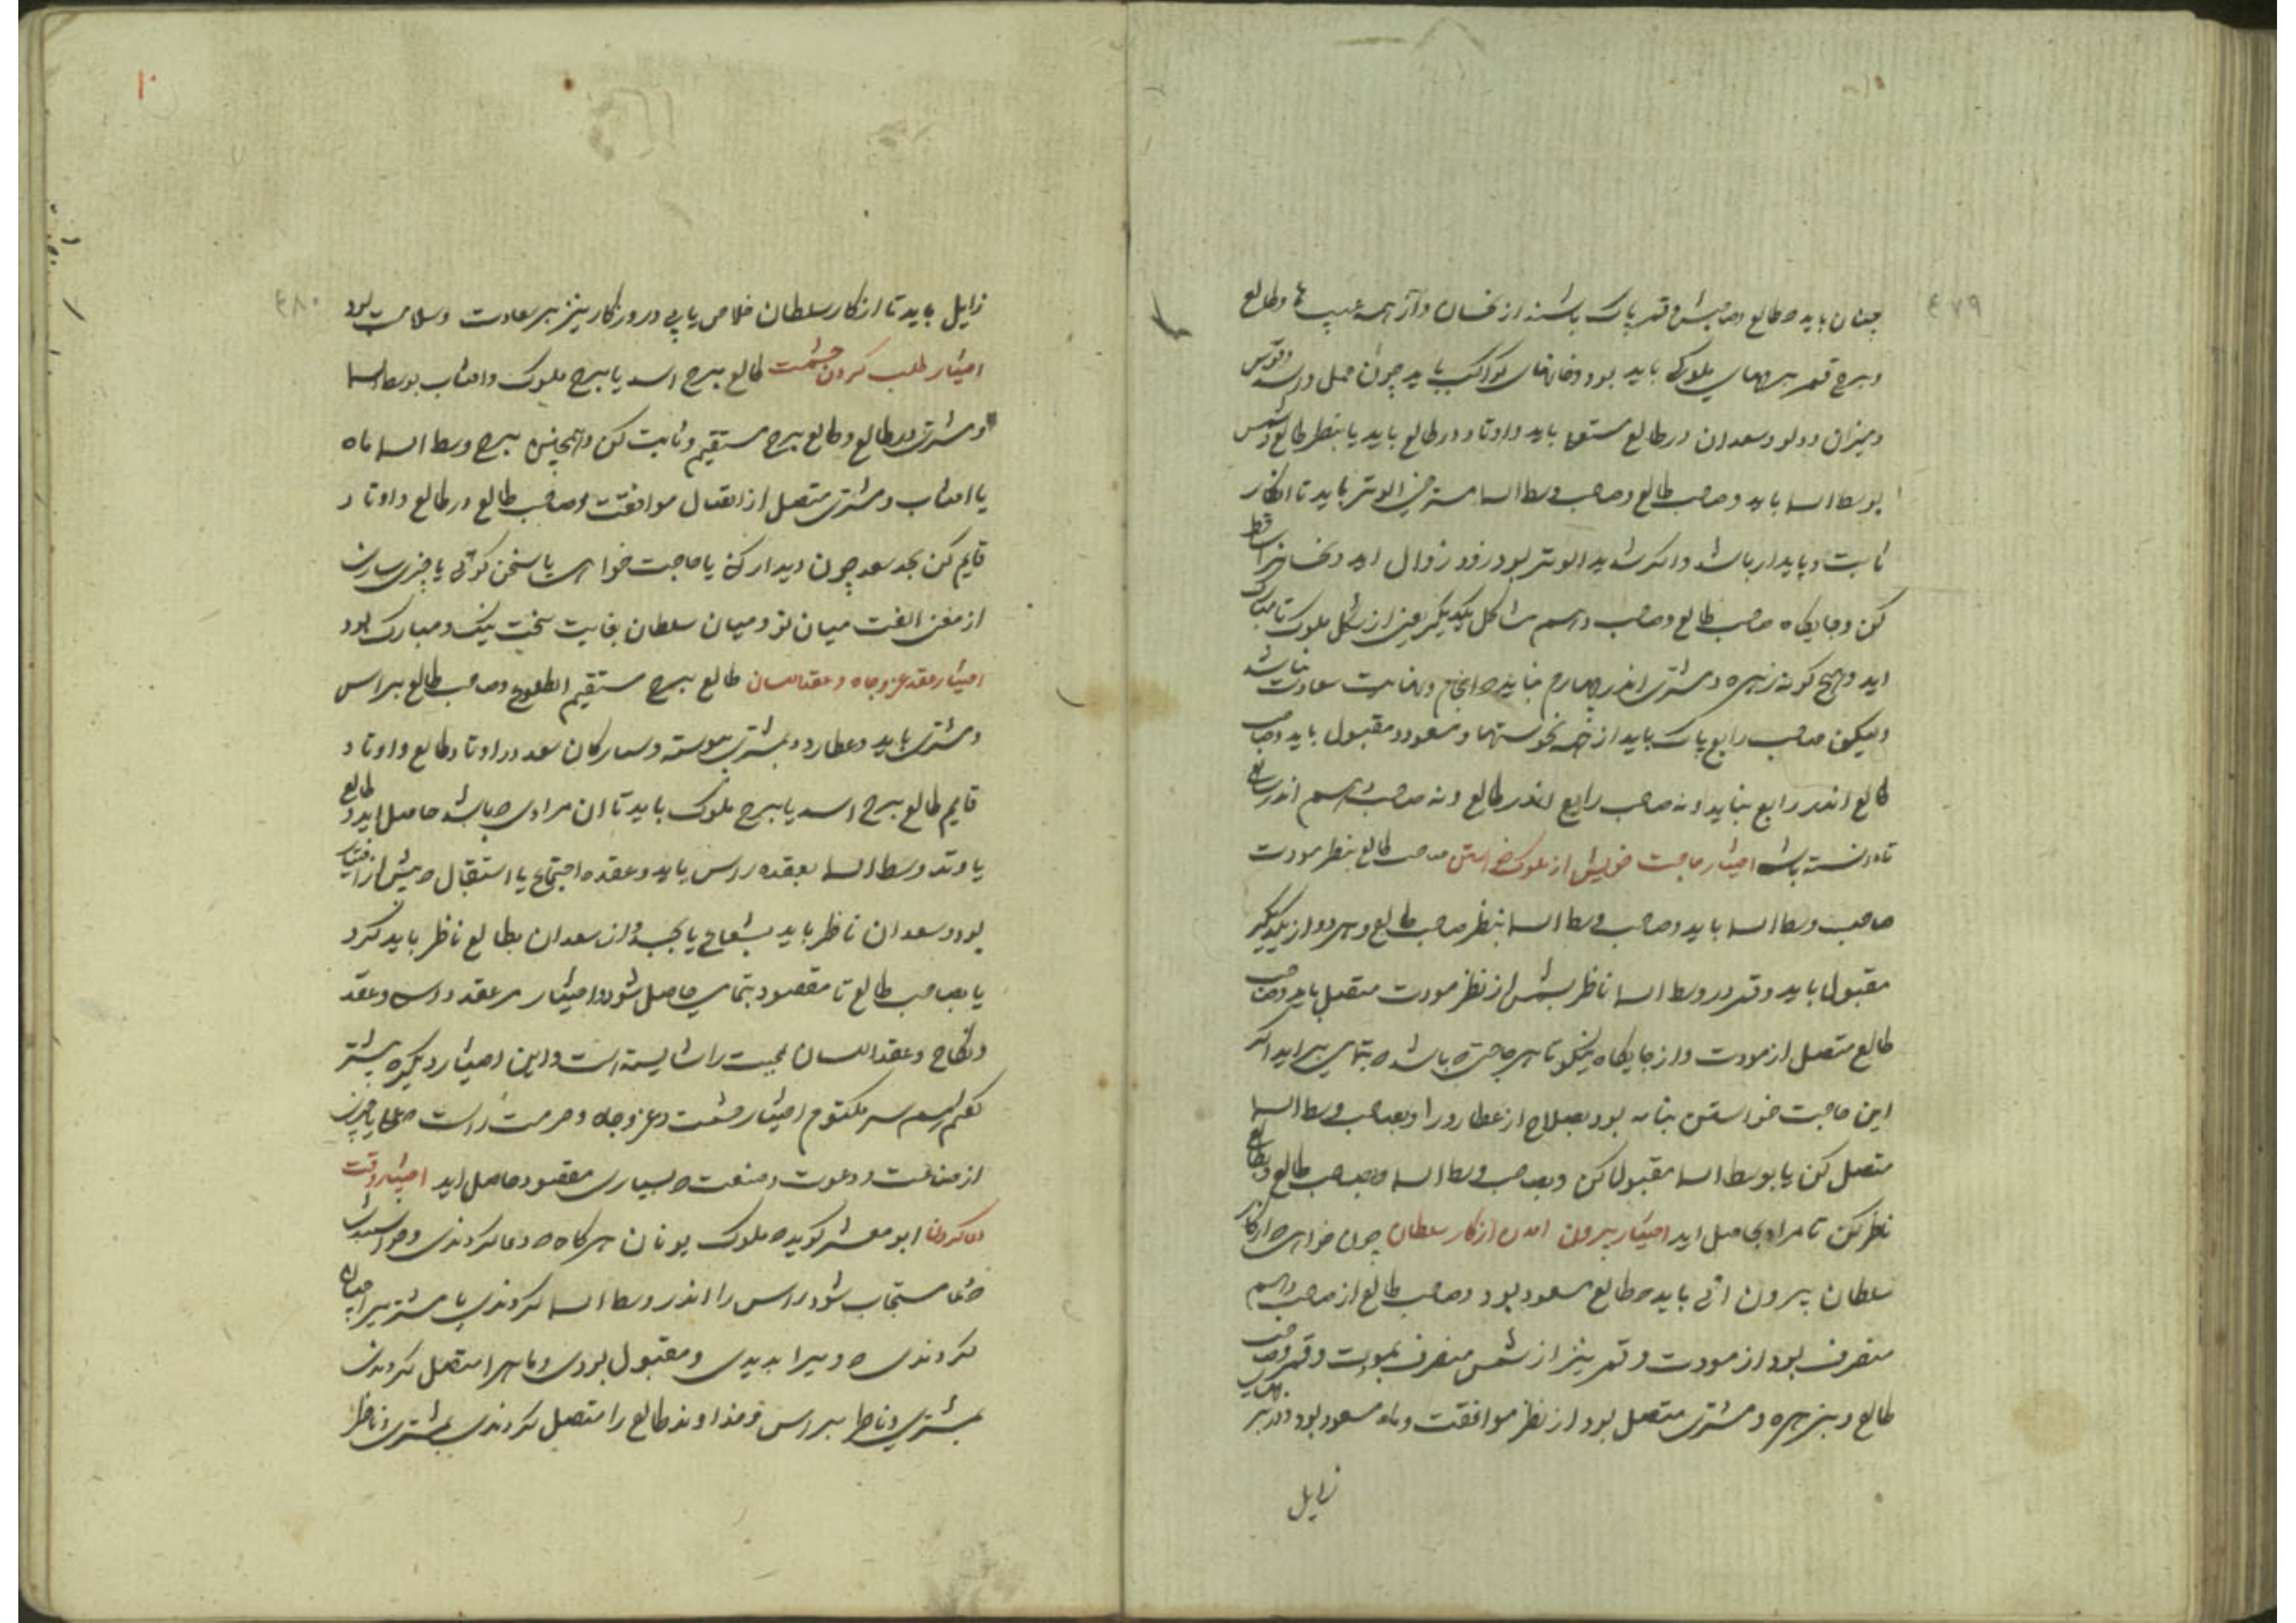 ۴۷۹
چنان باید که طالع و صاحبش و قمر پاک باشند از نحسان و از همه عیب ها و طالع
و برج قمر برجهای ملوک باید بود و خانهای کواکب باید چون حمل و اسد و قوس
و میزان و دلو و سعدان در طالع باید و اوتاد در طالع باید یا بنظر طالع و شمس
بوسط السما باید و صاحب طالع و صاحب وسط السما الوتر باید تا انکار
ثابت و پایدار باشد و اگر الوتر بود زود زوال اید و نحسانرا ساقط
کن و جایگاه صاحب طالع و صاحب دهم مشاکل یکدیگر یعنی از شکل ملوک تا مبارک
اید و هیچ گونه زهره و مشتری اندر چهارم نباید که انجام و نهایت سعادت نباشد
ولیکن صاحب رابع پاک باید از همه نحوستها و مسعود و مقبول باید و صاحب
طالع اندر رابع نباید و نه صاحب رابع اندر طالع و نه صاحب دهم اندر رابع
تا دانسته باشی اختیار حاجت خویش از ملوک خواستن صاحب طالع بنظر مودت
صاحب وسط السما باید و صاحب وسط السما بنظر صاحب طالع و هر دو از یکدیگر
مقبول باید و قمر در وسط السما ناظر بشمس از نظر مودت متصل باید و صاحب
طالع متصل از مودت و از جایگاه نیکو تا هر حاجتی که باشد بتمامی براید اگر
این حاجت خواستن بنامه بود بصلاح از عطارد را و بصاحب وسط السما
متصل کن یا بوسط السما مقبول کن و بصاحب وسط السما و بصاحب طالع و بطالع
ناظر کن تا مراد بحاصل اید اختیار بیرون امدن از کار سلطان چون خواهی که از کار
سلطان بیرون ائی باید که طالع مسعود بود و صاحب طالع از صاحب دهم
منصرف بود از مودت و قمر نیز از شمس منصرف بمودت و قمر و صاحب
طالع و بزهره و مشتری متصل بود از نظر موافقت و ماه مسعود بود و اندر
زایل
۴۸۰
۱۰
زایل باید تا از کار سلطان خلاص یابی و روزگار نیز بر سعادت و سلامت بود
اختیار طلب کردن حشمت طالع برج اسد یا برج ملوک و افتاب بوسط السما
و مشتری در طالع و طالع برج مستقیم و ثابت کن و همچنین برج وسط السما ماه
یا افتاب و مشتری متصل از اتصال موافقت و صاحب طالع در طالع و اوتاد
قایم کن بحد سعد چون دیدار کنی یا حاجت خواهی یا سخن گوئی یا چیزی سازی
از معنی الفت میان تو و میان سلطان بغایت سخت نیک و مبارک بود
اختیار عقد عز و جاه و عقد اللسان طالع برج مستقیم الطلوع و صاحب طالع براس
و مشتری باید و عطارد و بمشتری پیوسته و ستارگان سعد در اوتاد طالع و اوتاد
قایم طالع برج اسد یا برج ملوک باید تا ان مرادی که باشد حاصل اید و طالع
یا وتد وسط السما بعقده راس باید و عقده اجتماع یا استقبال که پیش از اختیار
بود و سعدان ناظر باید بشعاع یا بجسد و از سعدان بطالع ناظر باید کرد
یا بصاحب طالع تا مقصود بتمامی حاصل شود و اختیار مر عقد و عقد
و نکاح و عقد اللسان محبت را شایسته است و این اختیار دیگر که بیشتر
سر مکتوم اختیار حشمت و عز و جاه و حرمت راست
از صناعت و دعوت و منفعت که بسیاری مقصود حاصل اید اختیار وقت
دعا کردن ابو معشر گوید که ملوک یونان هر گاه که دعا کردندی و
دعا مستجاب شود راس را اندر وسط السما کردندی یا مشتری را
کردندی که ویرا بدیدی و مقبول بودی و ماه را متصل کردندی
بمشتری و ناظر براس و خداوند طالع را متصل کردندی بمشتری و ناظر